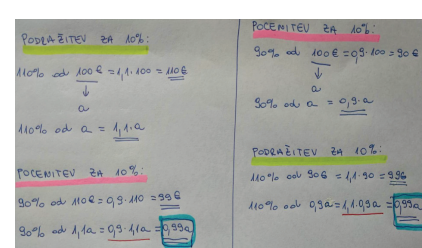 PODRAŽITEV ZA 10%:
110% od 100€ = 1,1·100 = 110€
a
110% od a = 1,1·a
POCENITEV ZA 10%:
90% od 110€ = 0,9·110 = 99€
90% od 1,1a = 0,9·1,1a = 0,99a
POCENITEV ZA 10%:
90% od 100€ = 0,9·100 = 90€
a
90% od a = 0,9·a
PODRAŽITEV ZA 10%:
110% od 90€ = 1,1·90 = 99€
110% od 0,9a = 1,1·0,9a = 0,99a